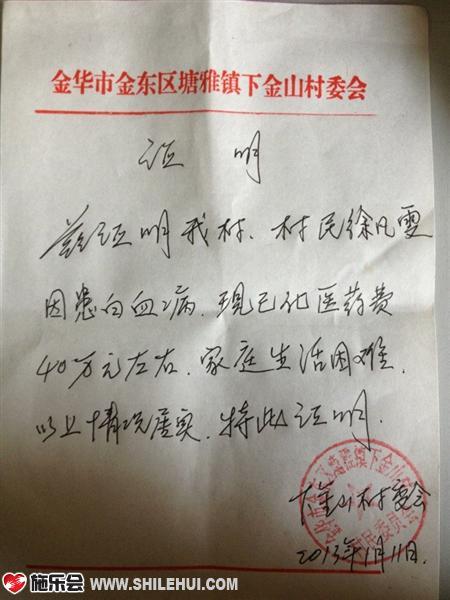 金华市金东区塘雅镇下金山村委会
证 明
兹证明我村、村民徐凡雯
因患白血病、现已化医药费
40万元左右、家庭生活困难、
以上情况属实、特此证明.
下金山村委会
2013年1月11日.
施乐会 WWW.SHILEHUI.COM